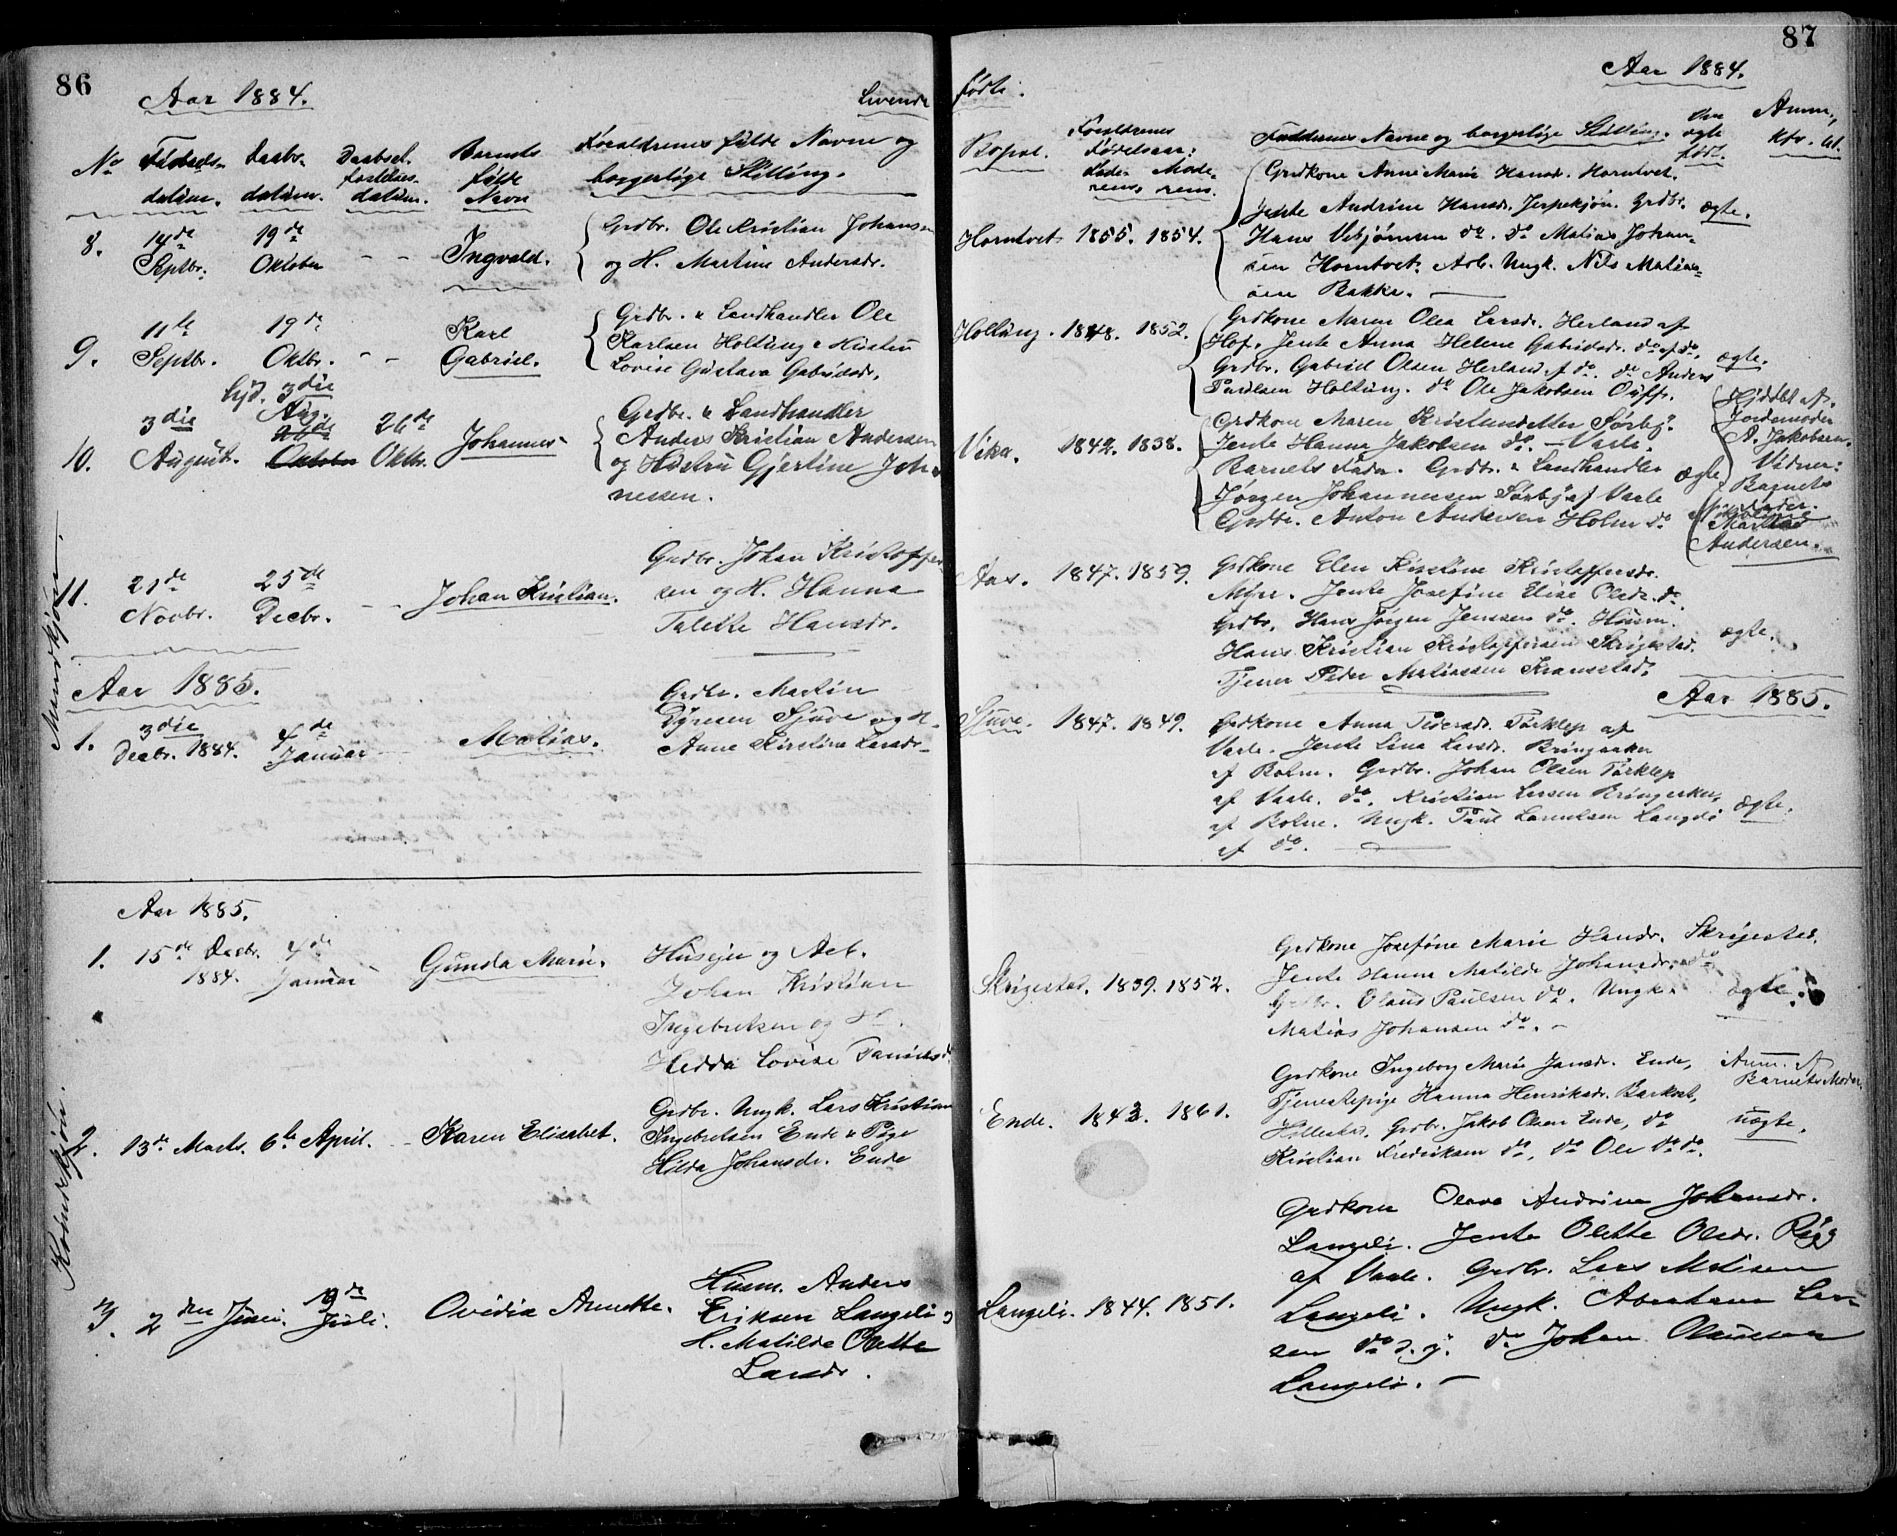 86
Aar 1884.
Levende
No Fødsels- Daabs- Daabsst. Barnets Forældrenes fulde Navne og
datum. datum. datum. fulde Navn borgerlige Stilling.
8. 14de Septbr. 19de Oktober - - Ingvald. Grdbr. Ole Kristian Johansen
og H. Martine Andersdr.
9. 11te Septbr. 19de Oktbr. - - Karl Gabriel. Grdbr. & Landhandler Ole
Karlsen Holtung & Hustru
Lovise Gustava Gabrielsdr.
10. 3die August. hjd. 3die Aug. Oktober 26de Oktbr. Johannes Grdbr. & Landhandler
Anders Kristian Andersen
og Hustru Gjertine Joh-
nessen.
Mundkjøn.
11. 21de Novbr. 25de Decbr. - - Johan Kristian. Grdbr. Johan Kristoffer-
sen og H. Hanna
Talette Hansdr.
Aar 1885.
1. 3die Decbr. 1884. 4de Januar Matias. Grdbr. Martin
Syresen Sjuve og H.
Anne Kirstine Larsdr.
Aar 1885.
1. 15de Decbr. 1884. 4de Januar Gunda Marie. Huseier og Arb.
Johan Kristian
Ingebretsen og H.
Hedda Lovise
Kvindekjøn.
2. 13de Marts. 6te April. - Karen Elisabet. Grdbr. Ungk. Lars Kristian
Ingebretsen Ende & Pige
Hilda Johansdr. Ende
3. 2den Juni. Juli. Ovidia Annette. Husm. Anders
Eriksen Langeli og
H. Matilde Olette
Larsdr.
87
Aar 1884.
fødte.
Bopæl. Forældrenes Fødelsaar: Faddernes Navne og borgerlige Stilling. Om ægte født. Anm., kfr. bl.
Fade- Mode-
rens, rens.
Horntvet 1855. 1854. Grdkone Anne Marie Hansd. Horntvet.
Jente Andrine Hansdr. Jerpekjøn. Grdbr. ægte.
Hans Vebjørnsen do. do Matias Johan-
sen Horntvet. Arb. Ungk. Nils Matias-
sen Bakke.
Holtung. 1848. 1852. Grdkone Maren Olea Larsdr. Herland af
Hof, Jente Anna Helene Gabrielsdr. do af do, ægte.
Grdbr. Gabriel Olsen Herland af do. do Anders
Paulsen Holtung. do Ole Jakobsen
Vika. 1842. 1838. Grdkone Maren Kristensdatter Sørby.
Jente Hanna Jakobsen do. - Vaale.
Barnets Fader. Grdbr. & Landhandler ægte
Jørgen Johannessen Sørby af Vaale
Grdbr. Anton Andersen Holm do
Hjdøbt af
Jordemoder
A. Jakobsen.
Vidner:
Barnets
Fader.
Andersen.
Aas. 1847. 1859. Grdkone Elen Kirstine Kristoffersdr.
Myre. Jente Josefine Elise Olsdr. do.
Grdbr. Hans Jørgen Jensen do. Husm.
Hans Kristian Kristoffersen Skrigestad. ægte.
Tjener Peder Matiassen Kranestad.
Aar 1885.
Sjuve. 1847. 1849. Grdkone Anna Pedersdr. Torklep af
Vaale. Jente Lina Larsdr. Bringaaker
af Botne. Grdbr. Johan Olsen Torklep
af Vaale. do. Kristian Larsen Bringaaker,
af Botne. Ungk. Paul Langelø ægte.
af do.
Skrigestad. 1839. 1852. Grdkone Josefine Marie Hansdr. Skrigestad.
Jente Hanna Matilde Johansdr. do
Grdbr. Olaus Paulsen do. Ungk. ægte.
Matias Johansen do. -
Ende. 1843. 1861. Grdkone Ingeborg Marie Jansdr. Ende, Anm. Af
Tjenestepige Hanna Henriksdr. Barkost, Barnets Moder.
Hillestad, Grdbr. Jakob Olsen Ende, do uægte.
Kristian Fredriksen do, do Ole do do.
Langeli. 1844. 1851. Grdkone Olava Andrine Johansdr.
Langeli. Jente Olette Olsdr. Rygg
af Vaale. Grdbr. Lars Matisen
Langeli. Ungk. Abraham Lar-
sen do s.g. do Johan Olaussen
Langeli. -